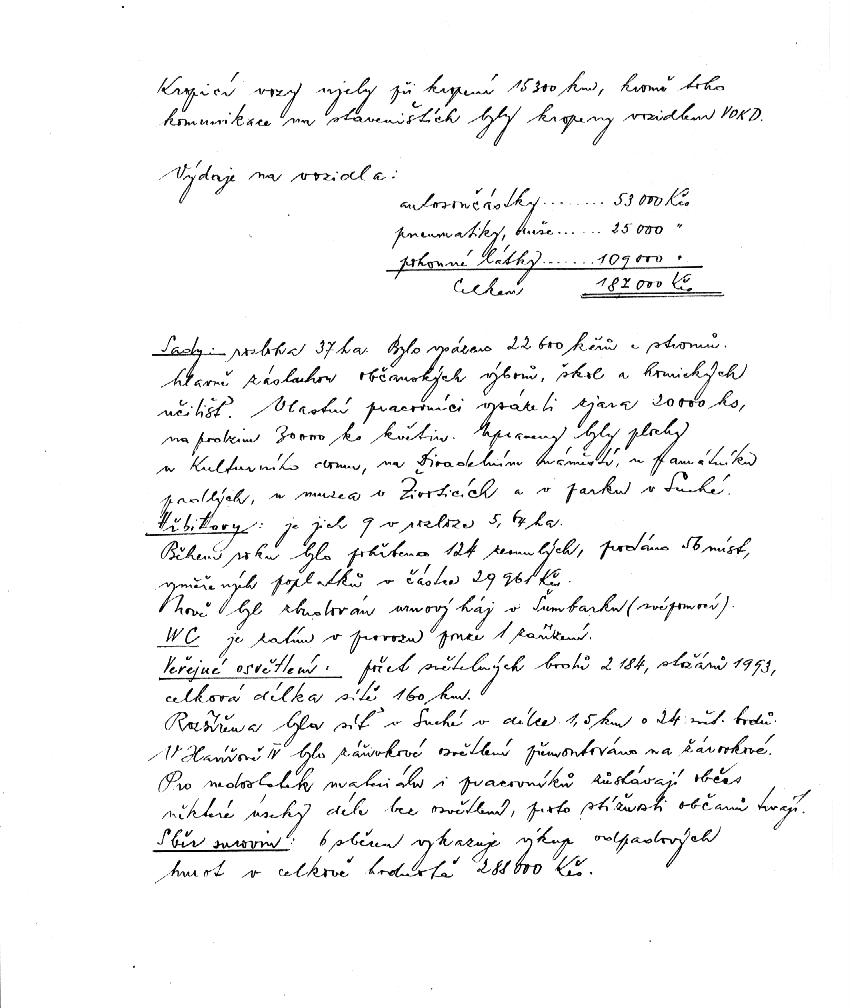 Kropicí vozy ujely při kropení 15300 km, kromě toho
komunikace na staveništích byly kropeny vozidlem VOKD.
Výdaje na vozidla:
autosoučástky........ 53 000 Kčs
pneumatiky, duše...... 25 000 "
pohonné látky....... 109 000 "
Celkem 187 000 Kčs
Sady: rozloha 37 ha. Bylo vysázeno 22 600 keřů a stromů.
hlavně zásluhou občanských výborů, škol a hornických
učilišť. Vlastní pracovníci vysázeli zjara 20000 ks,
na podzim 30000 ks květin. Upraveny byly plochy
u Kulturního domu, na Divadelním náměstí, u památníku
padlých, u muzea v Životicích a v parku v Suché.
Hřbitovy: je jich 9 v rozloze 5,64 ha.
Během roku bylo pohřbeno 124 zemřelých, prodáno 56 míst,
vyměřených poplatků v částce 29 961 Kčs.
Nově byl zbudován urnový háj v Šumbarku (svépomocí).
WC je zatím v provozu pouze 1 zařízení.
Veřejné osvětlení: počet světelných bodů 2 184, stožárů 1993,
celková délka sítě 160 km.
Rozšířena byla síť v Suché v délce 1,5 km o 24 svět. bodů.
V Havířově IV bylo zářivkové osvětlení přemontováno na žárovkové.
Pro nedostatek materiálu i pracovníků zůstávají občas
některé úseky déle bez osvětlení, proto stížnosti občanů trvají.
Sběr surovin: 6 sběren vykazuje výkup odpadových
hmot v celkové hodnotě 288 000 Kčs.